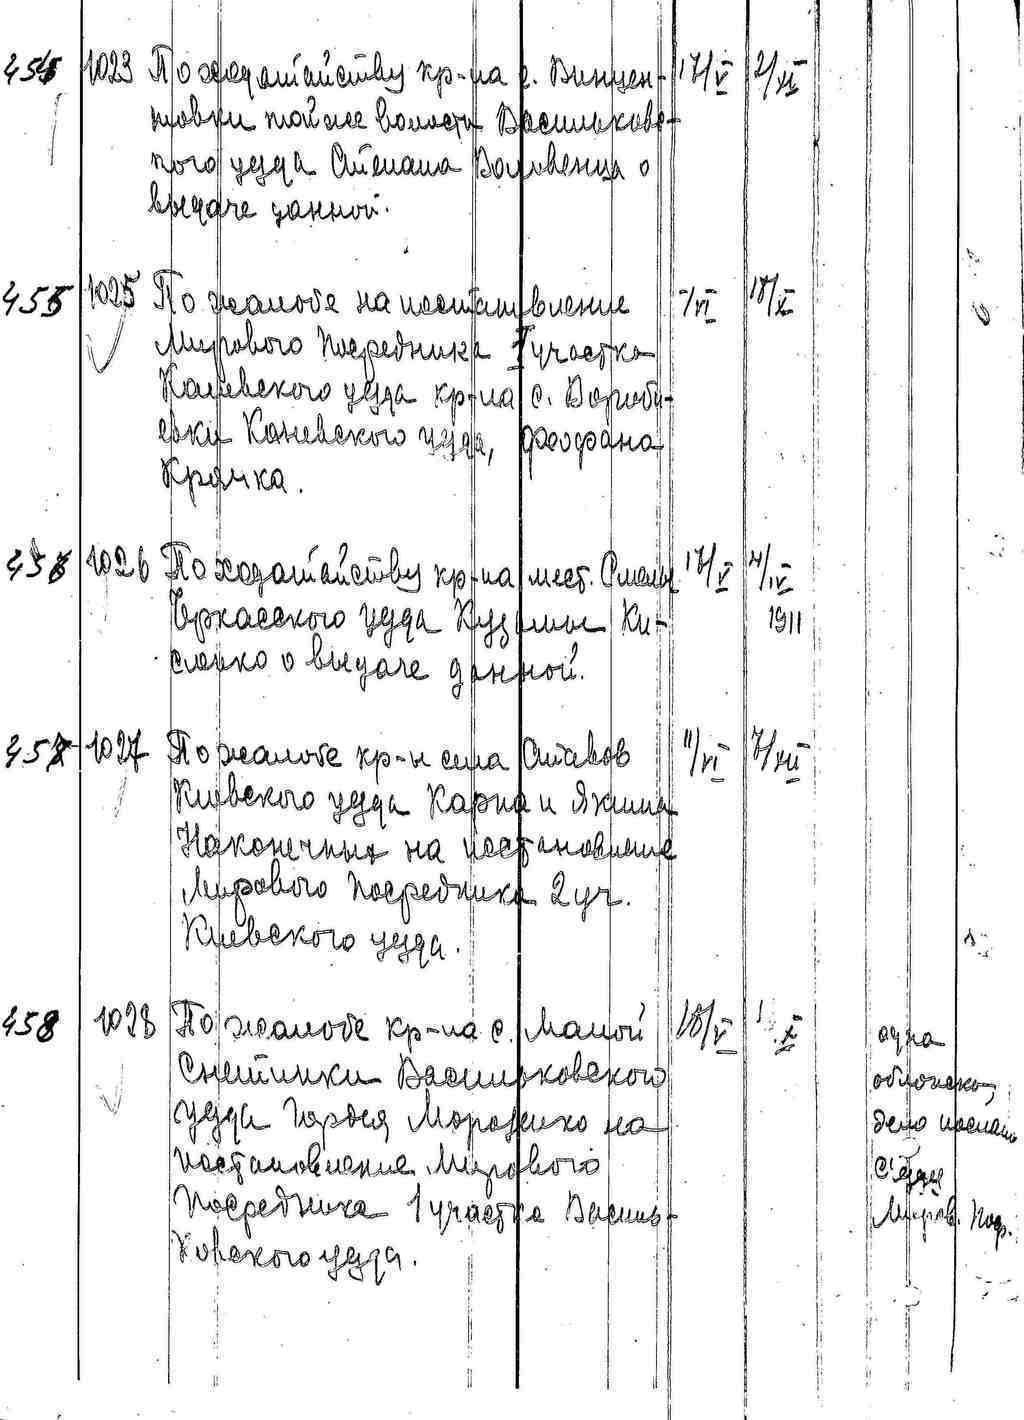 454 1023 По ходатайству кр-на с. Винцен- 17/V 2/XI
товки той же волости Васильковс-
кого уезда Степана Воловенца о
выдаче данной.
455 1025 По жалобе на постановление 7/VI 18/X
Мирового Посредника I участка
Каневского уезда кр-на с. Воробь-
евки Каневского уезда, Феофана
Крячка.
456 1026 По ходатайству кр-на мест. Смелы 17/V 7/IV
Черкасского уезда Кузьмы Ки- 1911
сленко о выдаче данной.
457 1027 По жалобе кр-н села Ставов 11/VI 7/XII
Киевского уезда Карпа и Якима
Наконечных на постановление
Мирового Посредника 2 уч.
Киевского уезда.
458 1028 По жалобе кр-на с. Малой 18/V X одна
Снетинки Васильковского обложка,
уезда Гордея Морозенко на дело послано
постановление Мирового С'езду
Посредника 1 участка Василь- Миров. Поср.
ковского уезда.